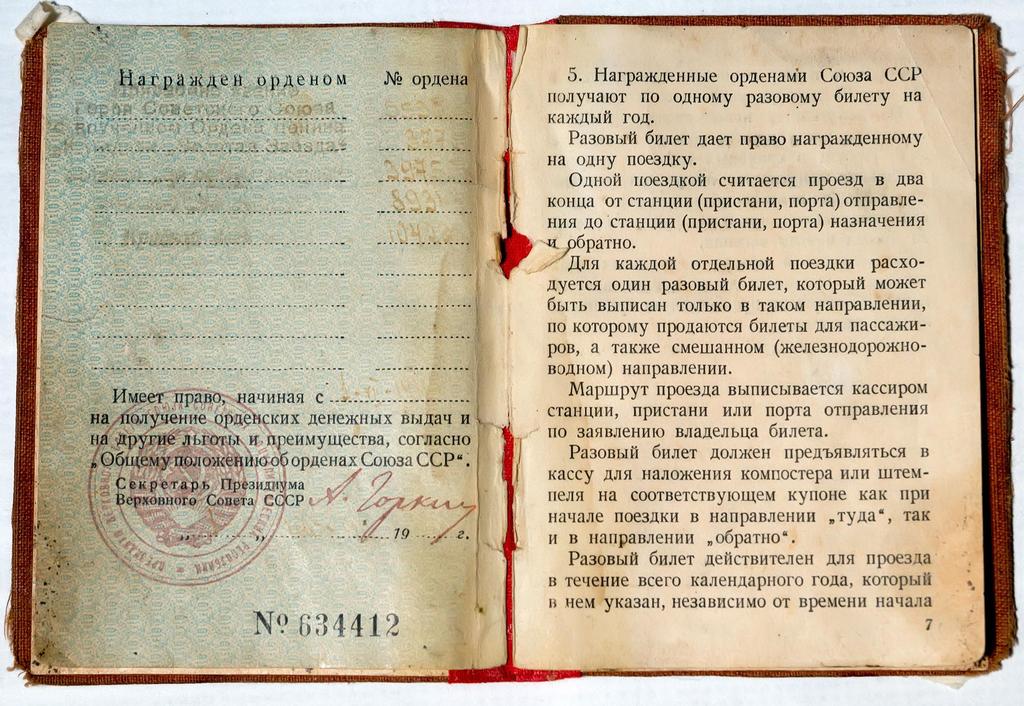 Награжден орденом № ордена
Героя Советского Союза
с вручением Ордена Ленина
Звезда"
Имеет право, начиная с
на получение орденских денежных выдач и
на другие льготы и преимущества, согласно
„Общему положению об орденах Союза ССР".
Секретарь Президиума
Верховного Совета СССР А. Горкин
„ „ 19 г.
№ 634412
5. Награжденные орденами Союза ССР
получают по одному разовому билету на
каждый год.
Разовый билет дает право награжденному
на одну поездку.
Одной поездкой считается проезд в два
конца от станции (пристани, порта) отправле-
ния до станции (пристани, порта) назначения
и обратно.
Для каждой отдельной поездки расхо-
дуется один разовый билет, который может
быть выписан только в таком направлении,
по которому продаются билеты для пассажи-
ров, а также смешанном (железнодорожно-
водном) направлении.
Маршрут проезда выписывается кассиром
станции, пристани или порта отправления
по заявлению владельца билета.
Разовый билет должен предъявляться в
кассу для наложения компостера или штем-
пеля на соответствующем купоне как при
начале поездки в направлении „туда", так
и в направлении „обратно".
Разовый билет действителен для проезда
в течение всего календарного года, который
в нем указан, независимо от времени начала
7